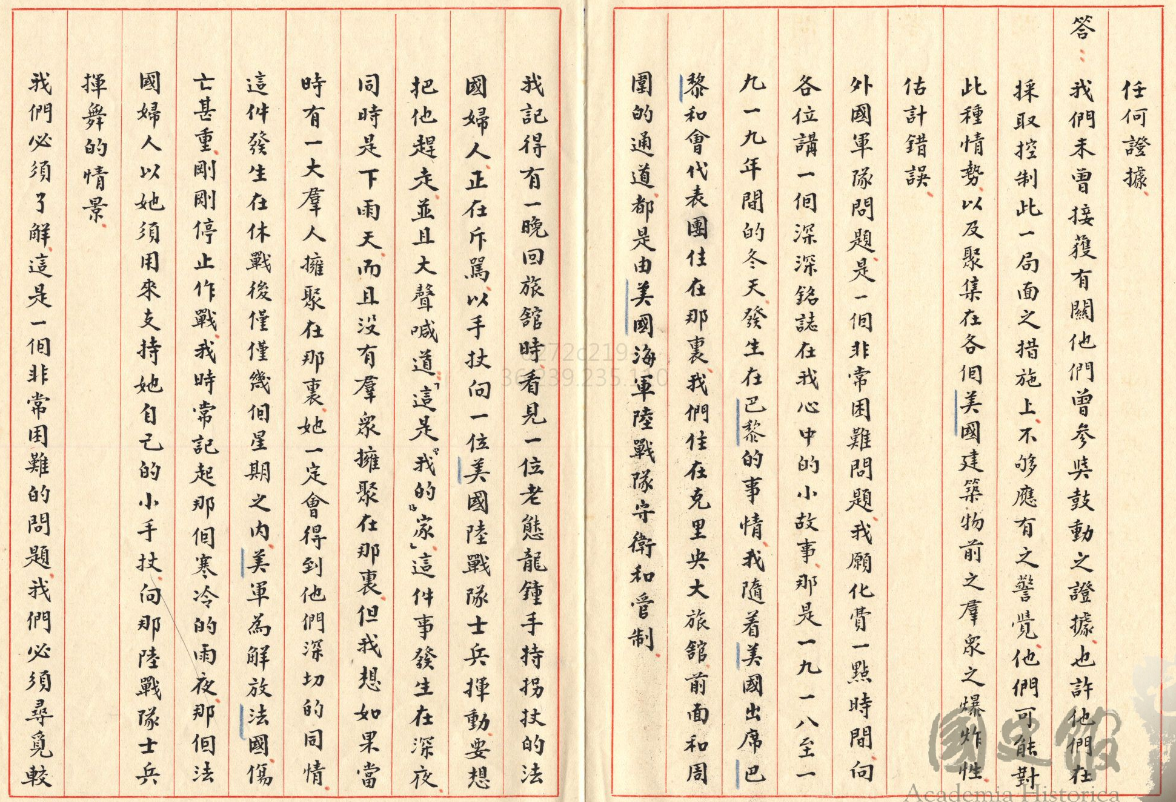 任何證據。
答：我們未曾接獲有關他們曾參與鼓動之證據。也許他們在
採取控制此一局面之措施上，不够應有之警覺。他們可能對
此種情勢，以及聚集在各個美國建築物前之羣衆之爆炸性，
估計錯誤。
外國軍隊問題，是一個非常困難問題。我願化費一點時間向
各位講一個深深銘誌在我心中的小故事。那是一九一八至一
九一九年間的冬天，發生在巴黎的事情。我隨着美國出席巴
黎和會代表團住在那裏。我們住在克里央大旅舘，前面和周
圍的通道都是由美國海軍陸戰隊守衛和管制。
我記得有一晚回旅舘時，看見一位老態龍鍾手持拐杖的法
國婦人，正在斥駡，以手杖向一位美國陸戰隊士兵揮動，要想
把他趕走，並且大聲喊道：「這是『我的』家」這件事發生在深夜，
同時是下雨天，而且没有羣衆擁聚在那裏。但我想如果當
時有一大羣人擁聚在那裏，她一定會得到他們深切的同情。
這件發生在休戰後僅僅幾個星期之内，美軍為解放法國，傷
亡甚重，剛剛停止作戰。我時常記起那個寒冷的雨夜，那個法
國婦人以她須用來支持她自己的小手杖，向那陸戰隊士兵
揮舞的情景。
我們必須了解，這是一個非常困難的問題。我們必須尋覓較
6272c219
36.239.235.110
國史館
Academia Historica